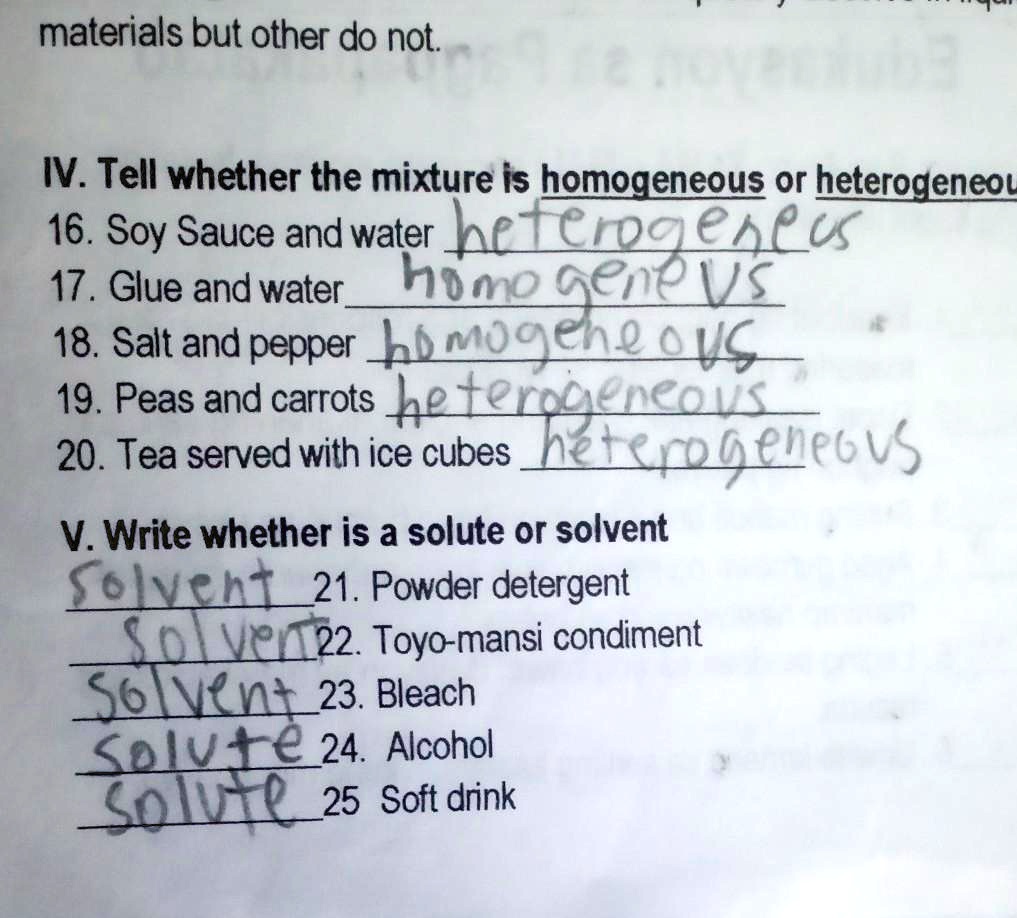 materials but other do not.
IV. Tell whether the mixture is homogeneous or heterogeneou
16. Soy Sauce and water heterogeneus
17. Glue and water homogenevs
18. Salt and pepper homogeneous
19. Peas and carrots heterogeneous
20. Tea served with ice cubes heterogeneous
V. Write whether is a solute or solvent
solvent 21. Powder detergent
solvent 22. Toyo-mansi condiment
solvent 23. Bleach
solute 24. Alcohol
solute 25 Soft drink